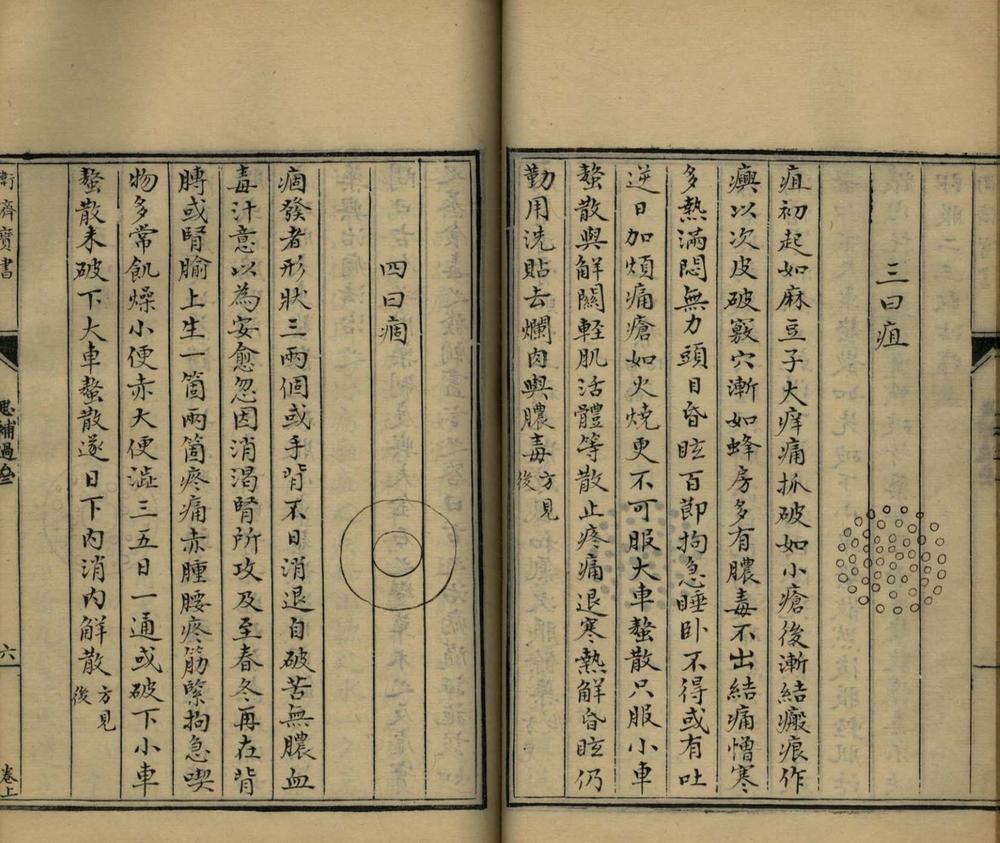 三曰疽
疽初起如麻豆子大痒痛抓破如小瘡後漸結瘢痕作
瘼以次皮破竅穴漸如蜂房多有膿毒不出結痛憎寒
多熱滿悶無力頭目昏眩百節拘急睡卧不得或有吐
逆日加煩痛瘡如火燒更不可服大車螯散只服小車
螯散與解關輕肌活體等散止疼痛退寒熱解昏眩仍
勤用洗貼去爛肉與膿毒方見後
四曰痼
痼發者形狀三兩個或手背不日消退自破苦無膿血
毒汁意以為安愈忽因消渴腎所攻及至春冬再在背
膊或腎腧上生一箇兩箇疼痛赤腫腰疼筋緊拘急喫
物多常飢燥小便赤大便澁三五日一通或破下小車
螯散未破下大車螯散遂日下內消內解散方見後
衛濟寶書
六
卷上